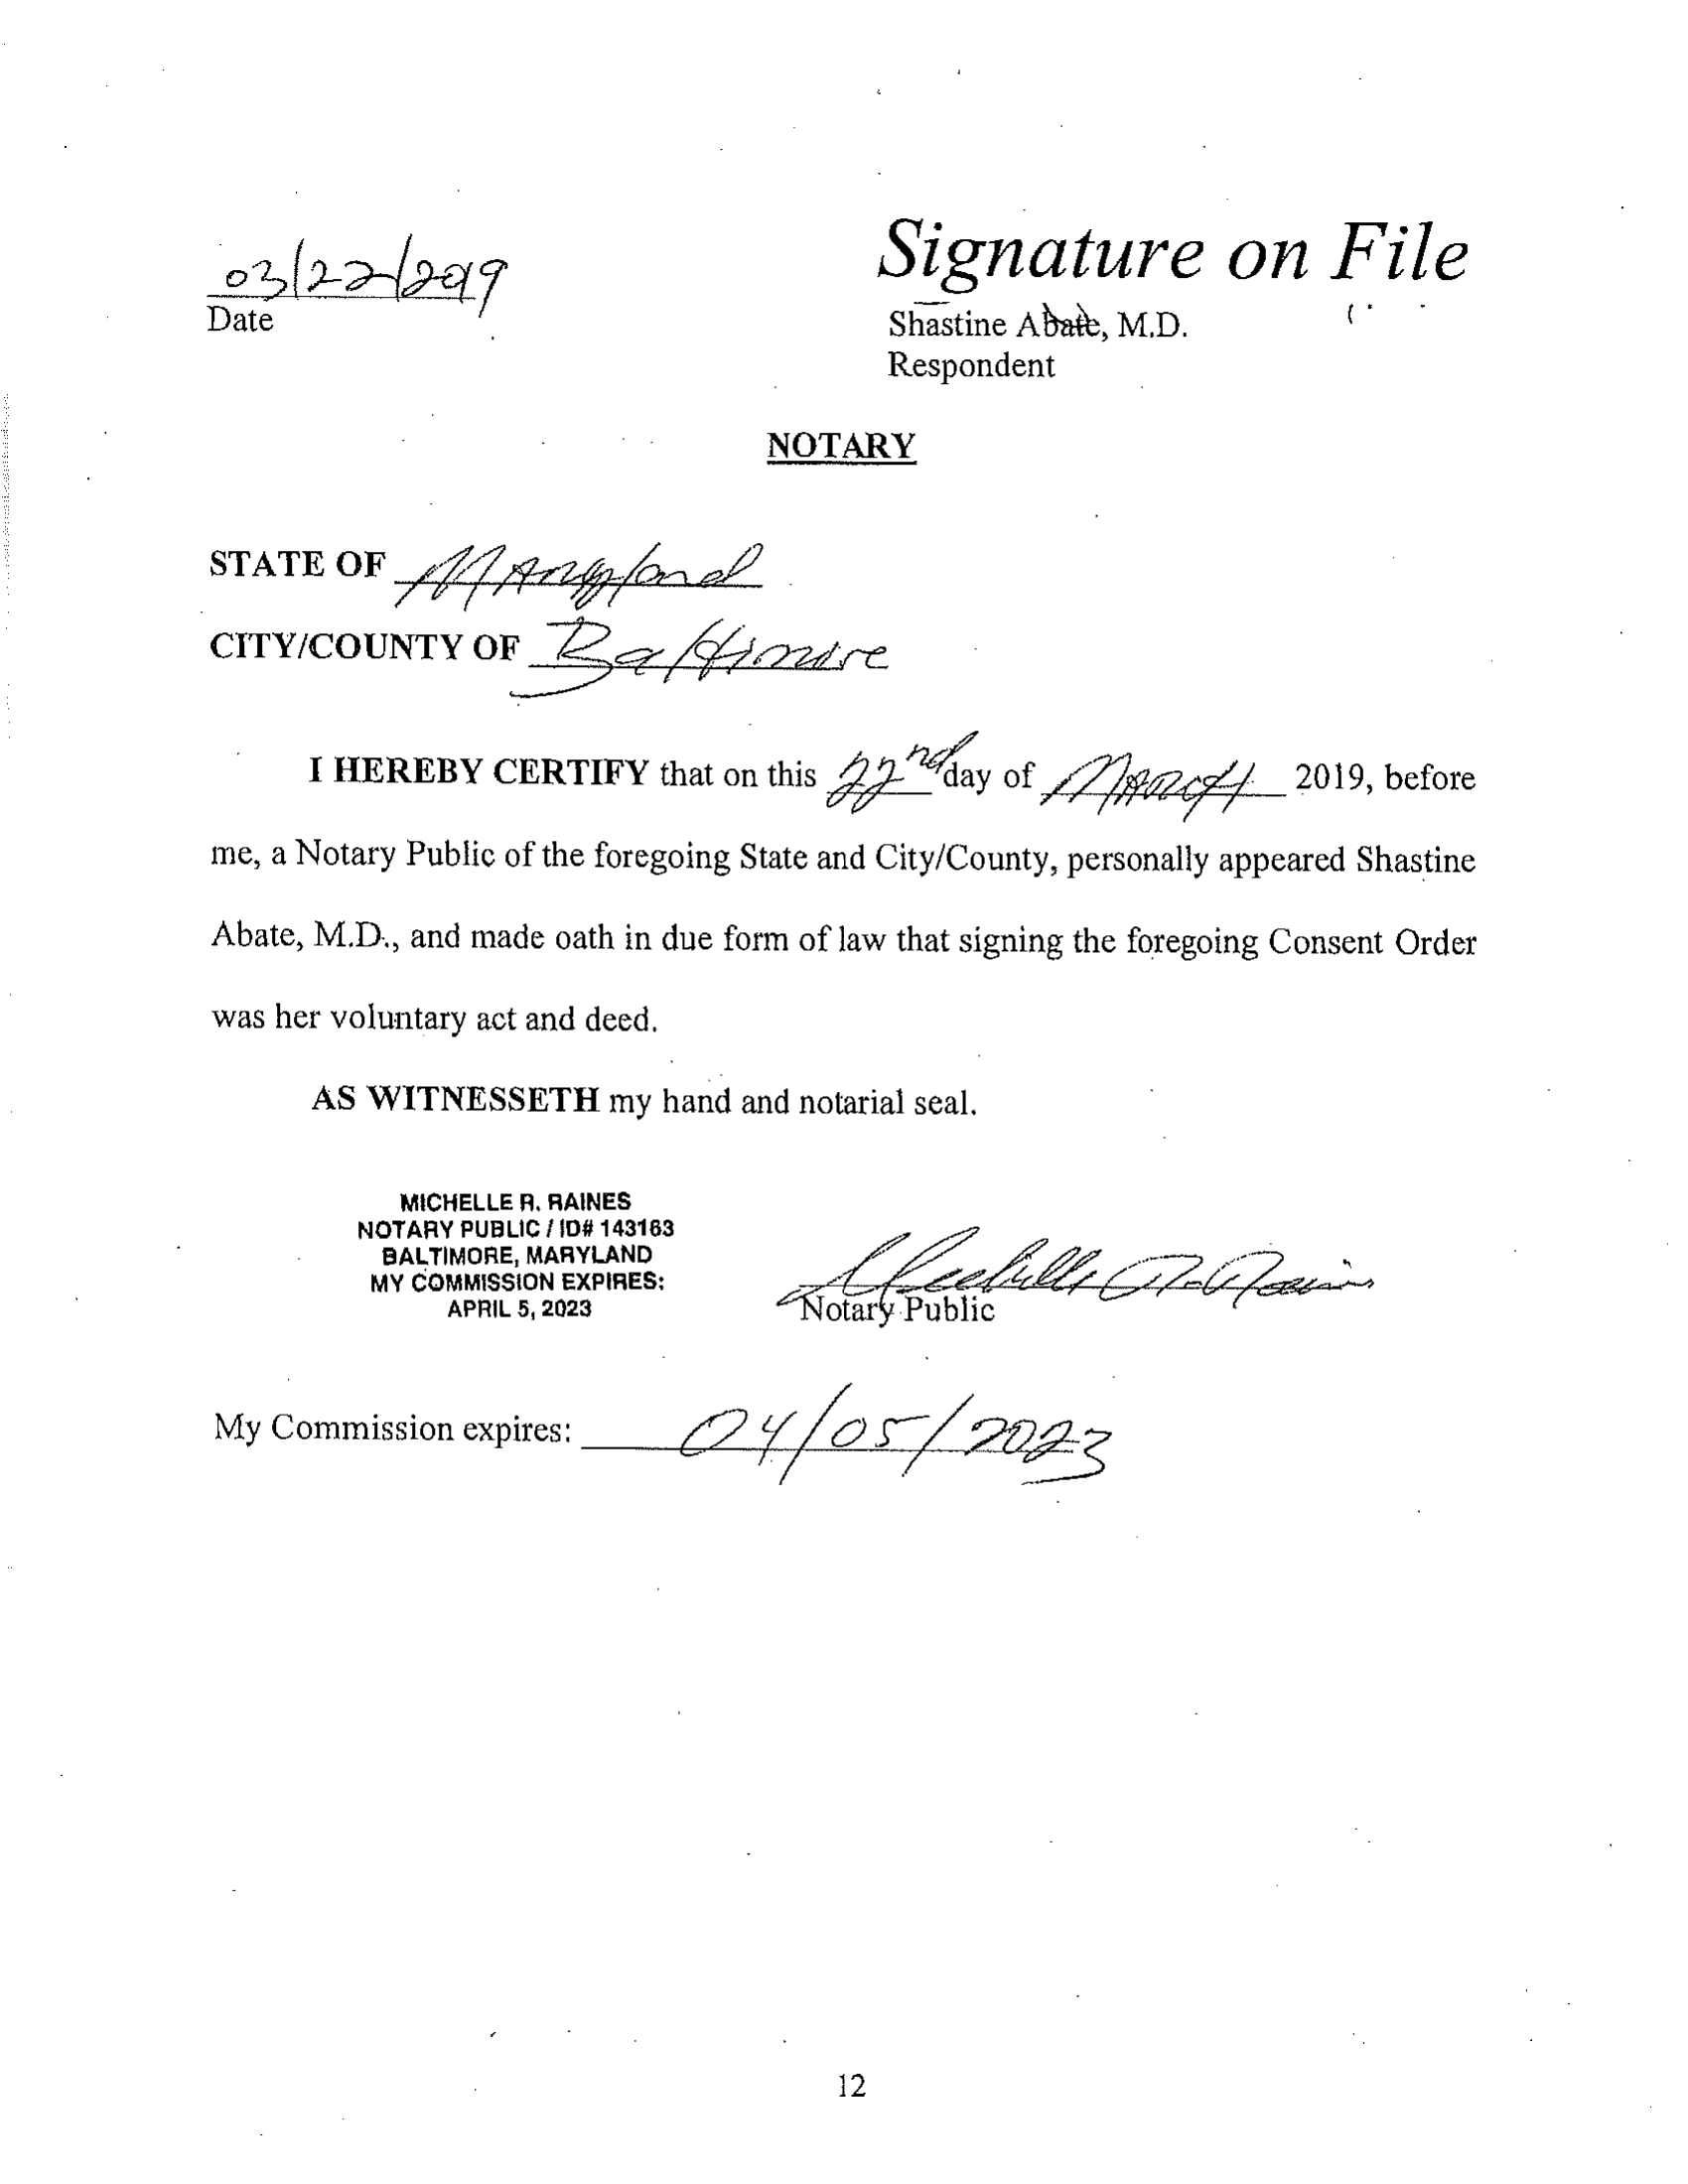 03/22/2019
Date
Signature on File
Shastine Abate, M.D.
Respondent
NOTARY
STATE OF Maryland
CITY/COUNTY OF Baltimore
I HEREBY CERTIFY that on this 22nd day of MARCH 2019, before
me, a Notary Public of the foregoing State and City/County, personally appeared Shastine
Abate, M.D., and made oath in due form of law that signing the foregoing Consent Order
was her voluntary act and deed.
AS WITNESSETH my hand and notarial seal.
MICHELLE R. RAINES
NOTARY PUBLIC / ID# 143163
BALTIMORE, MARYLAND
MY COMMISSION EXPIRES:
APRIL 5, 2023
Michelle R. Raines
Notary Public
My Commission expires: 04/05/2023
12